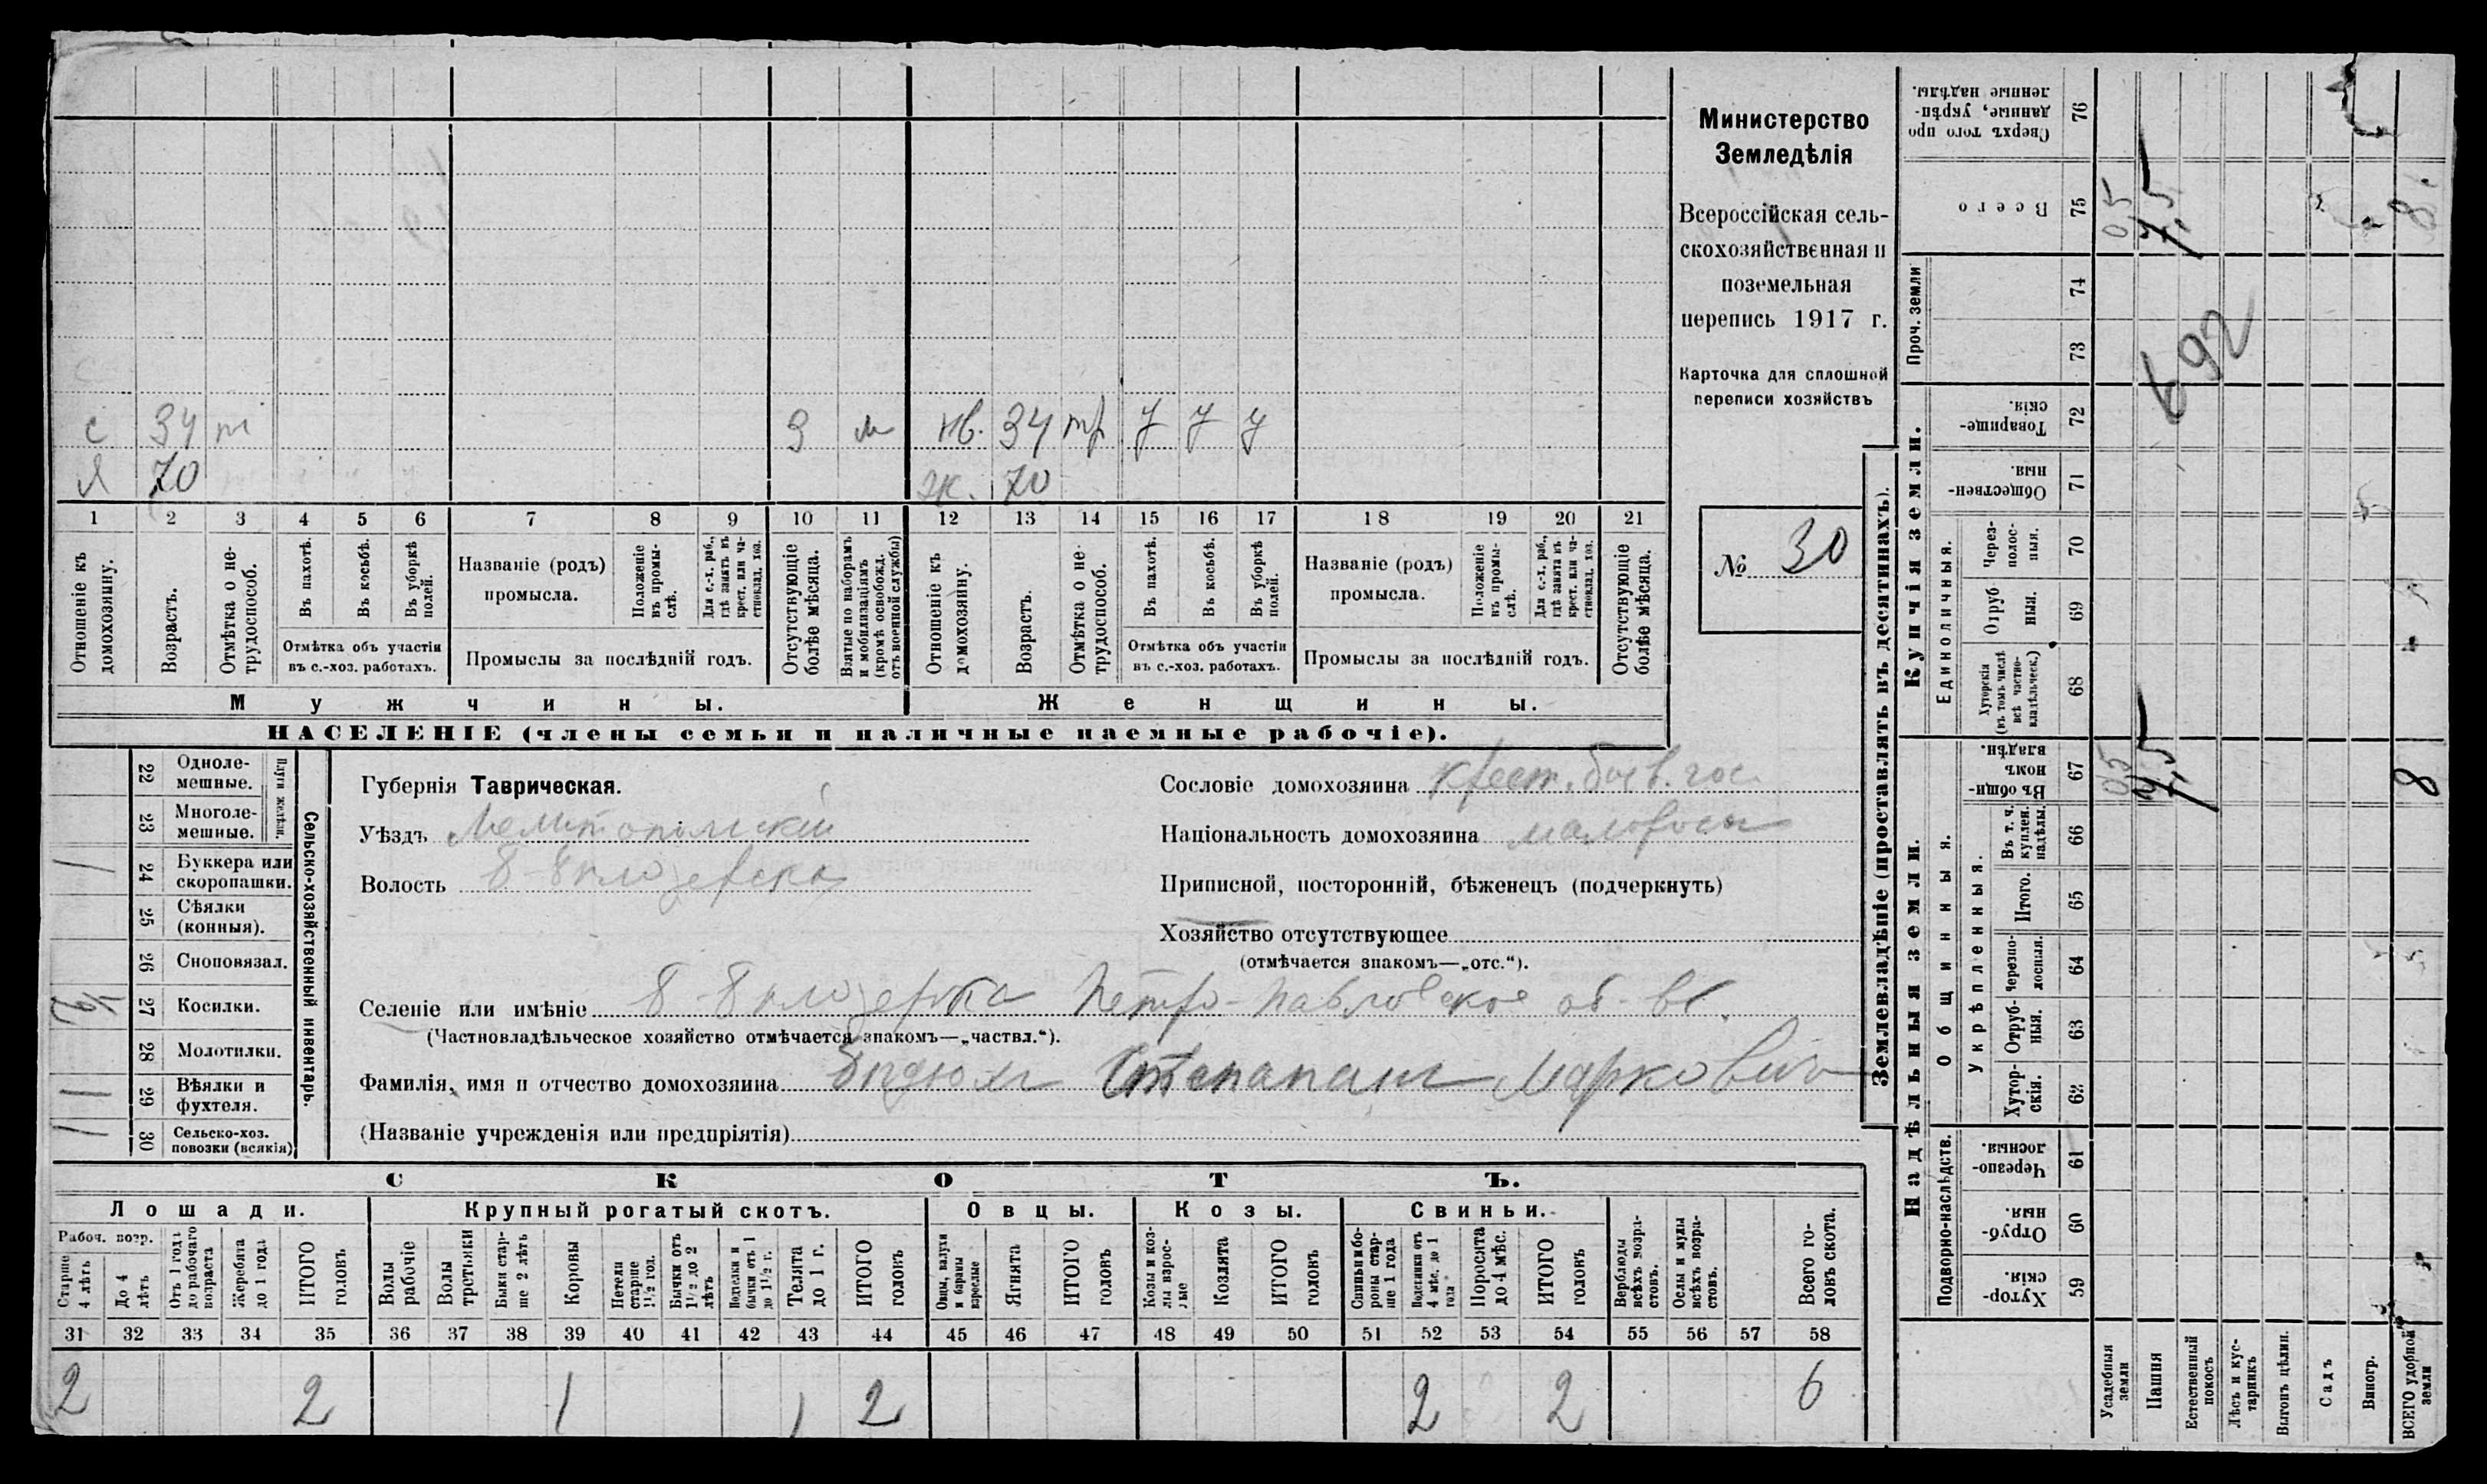 Министерство
Земледѣлія
Всероссійская сель-
скохозяйственная и
поземельная
перепись 1917 г.
Карточка для сплошной
переписи хозяйствъ
№ 30
с 34 т 3 м нв. 34 тр 7 7 7
Я 70 ж. 70
1 2 3 4 5 6 7 8 9 10 11 12 13 14 15 16 17 18 19 20 21
Отношеніе къ домохозяину.
Возрастъ.
Отмѣтка о не-трудоспособ.
Въ пахотѣ.
Въ косьбѣ.
Въ уборкѣ полей.
Отмѣтка объ участіи
въ с.-хоз. работахъ.
Названіе (родъ)
промысла.
Положеніе въ промы-слѣ.
Для с.-х. раб., гдѣ занятъ въ крест. или ча-стновлад. хоз.
Промыслы за послѣдній годъ.
Отсутствующіе болѣе мѣсяца.
Взятые по наборамъ и мобилизаціямъ (кромѣ освобожд. отъ военной службы)
Отношеніе къ домохозяину.
Возрастъ.
Отмѣтка о не-трудоспособ.
Въ пахотѣ.
Въ косьбѣ.
Въ уборкѣ полей.
Отмѣтка объ участіи
въ с.-хоз. работахъ.
Названіе (родъ)
промысла.
Положеніе въ промы-слѣ.
Для с.-х. раб., гдѣ занята въ крест. или ча-стновлад. хоз.
Промыслы за послѣдній годъ.
Отсутствующіе болѣе мѣсяца.
Мужчины. Женщины.
НАСЕЛЕНІЕ (члены семьи и наличные наемные рабочіе).
Сельско-хозяйственный инвентарь.
Плуги желѣзн.
22 Одноле-мешные.
23 Многоле-мешные.
1 24 Буккера или скоропашки.
25 Сѣялки (конныя).
26 Сноповязал.
27 Косилки.
28 Молотилки.
1 29 Вѣялки и фухтеля.
1 30 Сельско-хоз. повозки (всякія)
Губернія Таврическая.
Уѣздъ Мелитопольскій
Волость
Сословіе домохозяина крест.
Національность домохозяина малоросс
Приписной, посторонній, бѣженецъ (подчеркнуть)
Хозяйство отсутствующее
(отмѣчается знакомъ—„отс.“).
Селеніе или имѣніе Петро-Павловское
(Частновладѣльческое хозяйство отмѣчается знакомъ—„частвл.“).
Фамилія, имя и отчество домохозяина Маркович
(Названіе учрежденія или предпріятія)
СКОТЪ.
Лошади. Крупный рогатый скотъ. Овцы. Козы. Свиньи.
Рабоч. возр.
Старше 4 лѣтъ
До 4 лѣтъ
Отъ 1 года до рабочаго возраста
Жеребята до 1 года
ИТОГО головъ
Волы рабочіе
Волы третьяки
Быки стар-ше 2 лѣтъ
Коровы
Нетели старше 1½ год.
Бычки отъ 1½ до 2 лѣтъ
Подтелки и бычки отъ 1 до 1½ г.
Телята до 1 г.
ИТОГО головъ
Овцы, валухи и бараны взрослые
Ягнята
ИТОГО головъ
Козы и коз-лы взрос-лые
Козлята
ИТОГО головъ
Свиньи и бо-ровы стар-ше 1 года
Подсвинки отъ 4 мѣс. до 1 года
Поросята до 4 мѣс.
ИТОГО головъ
Верблюды всѣхъ возра-стовъ.
Ослы и мулы всѣхъ возра-стовъ.
Всего го-ловъ скота.
31 32 33 34 35 36 37 38 39 40 41 42 43 44 45 46 47 48 49 50 51 52 53 54 55 56 57 58
2 2 1 1 2 2 2 6
Землевладѣніе (проставлять въ десятинахъ).
Надѣльныя земли. Купчія земли. Проч. земли
Подворно-наслѣдств.
Общинныя.
Укрѣпленныя.
Единоличныя.
Хутор-скія. 59
Отруб-ныя. 60
Черезпо-лосныя. 61
Хутор-скія. 62
Отруб-ныя. 63
Черезпо-лосныя. 64
Итого. 65
Въ т. ч. куплен. надѣлы. 66
Въ общи-номъ владѣн. 67
Хуторскія (въ томъ числѣ всѣ частно-владѣльческ.) 68
Отруб-ныя. 69
Через-полос-ныя. 70
Обществен-ныя. 71
Товарище-скія. 72
73
74
Всего 75
Сверхъ того про-данные, укрѣп-ленные надѣлы. 76
Усадебныя земли 0,5 0,5
Пашня 7,5 7,5
692
Естественный покосъ
Лѣсъ и кус-тарникъ
Выгонъ цѣлин.
Садъ
Виногр.
ВСЕГО удобной земли 8 8